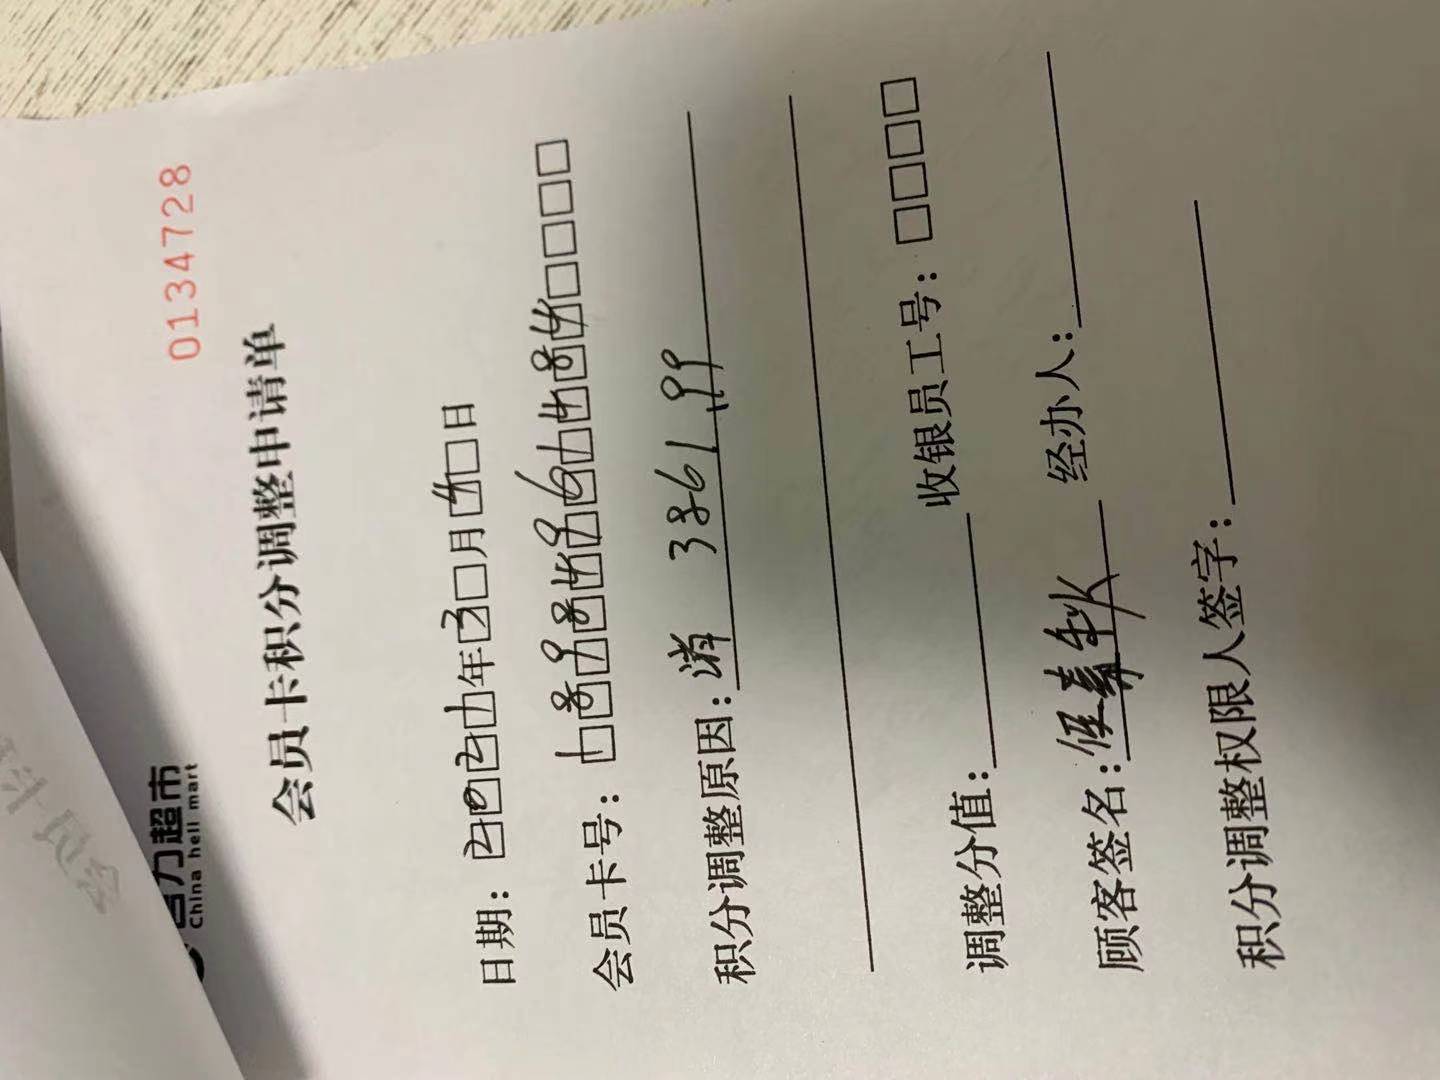 力超市
China hell mart
0134728
会员卡积分调整申请单
日期：2021年3月4日
会员卡号：
积分调整原因：消 3861.99
调整分值： 收银员工号：
顾客签名： 经办人：
积分调整权限人签字：